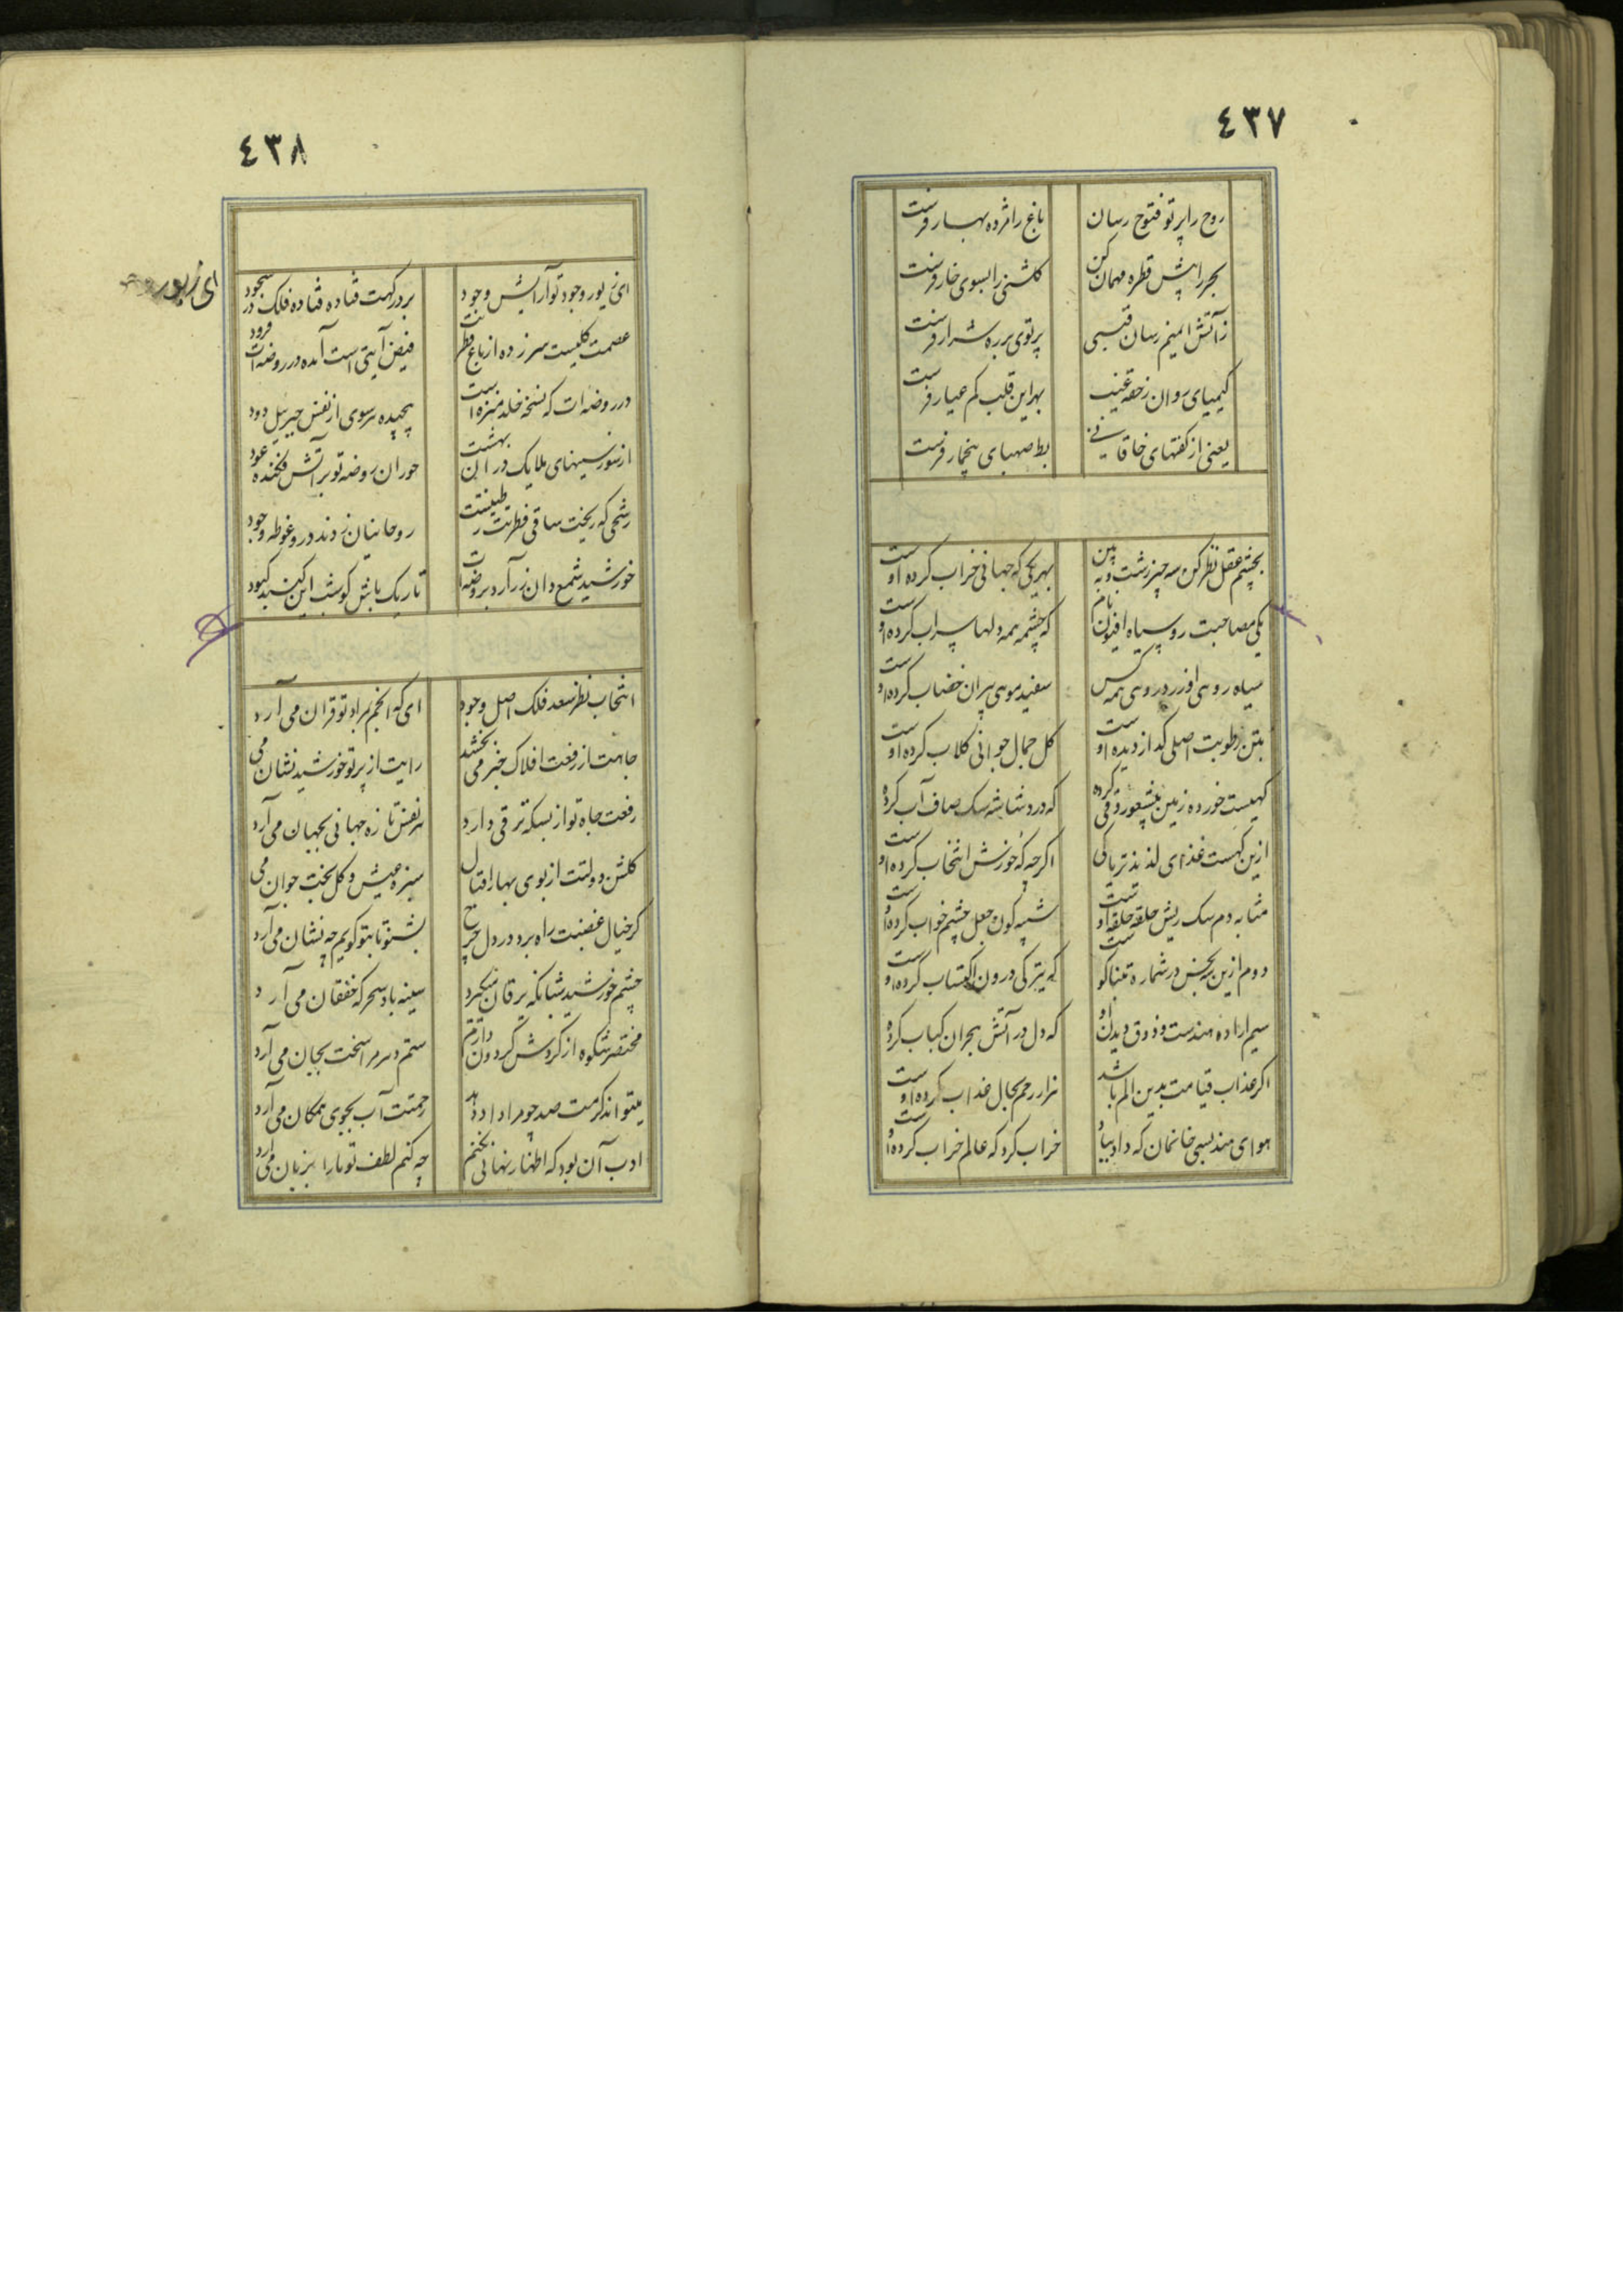 ٤٣٧
روح را پرتو فتوح رسان
باغ را مژده بهار فرست
بحر را پیش قطره مهمان کن
گلشنی را بسوی خار فرست
ز آتش ایمنم رسان قبسی
پرتوی بر ره شرار فرست
کیمیای روان ز حقه غیب
بهر این قلب کم عیار فرست
یعنی از گفتهای خاقانی
بط صهبای بیخمار فرست
بچشم عقل نظر کن سه چیز زشت و به بین
بهر یکی که جهانی خراب کرده اوست
یکی مصاحبت روسیاه افیون نام
که چشمه همه دلها سراب کرده اوست
سیاه روهی افزر در روهی همه کس
سفید موهی پیران خضاب کرده اوست
بتن رطوبت اصلی گدازدیده اوست
گل جمال جوانی گلاب کرده اوست
خورده زبین
که درد شاشه سک صاف آب کرده
ازین غذای لذیذ تریاکی
اگرچه که خورش انتخاب کرده اوست
مثابه دم سک ریش حلقه حلقه اوست
شپه کون جعل چشم خواب کرده اوست
دوم ازین در شماره تنباکو ست
که تیرگی درون اکتساب کرده اوست
سیم اراده هندست و ذوق دیدن او
که دل در آتش هجران کباب کرده
اگر عذاب قیامت بدین الم باشد
هزار رحم بحال عذاب کرده اوست
هوای هند بسی خانمان که داد بباد
خراب کرد که عالم خراب کرده اوست
٤٣٨
ای زیور وجود تو آرایش وجود
بر درگهت فتاده فتاده فلک در سجود
عصمت گلیست سر زده از باغ فطرتت
فیض آیتی است آمده در روضه ات فرود
در روضه ات که نسخه خلد منزه است
پیچیده هر سوی از نفس جبریل دود
از نور سینهای ملایک در ان بهشت
حوران روضه تو بر آتش فکنده عود
رشحی که ریخت ساقی فطرت ز طینتت
روحانیان زدند درو غوطه وجود
خورشید شمع دان زر آرد بروضه ات
تاریک باش گو شب این گنبد کبود
ای زیور
انتخاب نظر سعد فلک اصل وجود
ای که انجم بمراد تو قران می آرد
جاهت از رفعت افلاک خبر می بخشد
رایت از پرتو خورشید نشان می
رفعت جاه تو از بسکه ترقی دارد
هر نفس تازه جهانی بجهان می آرد
گلشن دولتت از بوی بهار اقبال
سبزه عیش و گل بخت جوان می
گر خیال غضبت راه برد در دل چرخ
بشنو تا بتو گویم چه نشان می آرد
چشم خورشید شبانگه یرقان میگیرد
سینه باد سحرگه خفقان می آرد
مختصر شکوه از گردش گردون دارم
ستم دهر مرا سخت بجان می آرد
میتواند کرمت صد چو مرا داد دهد
رحمتت آب بجوی همگان می آرد
ادب آن بود که اظهار نهانی نکنم
چه کنم لطف تو ما را بزبان می آرد